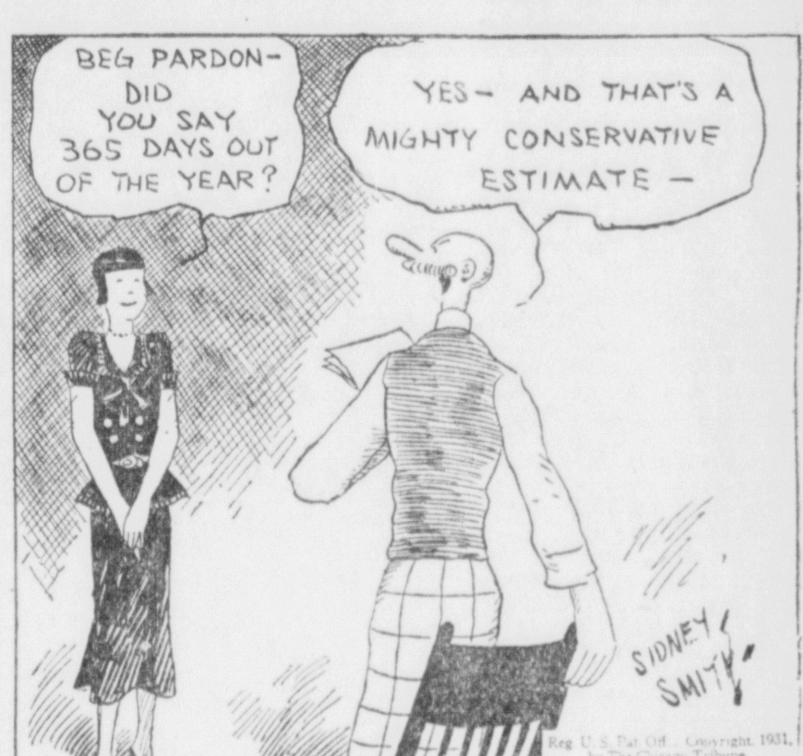 BEG PARDON-
DID
YOU SAY
365 DAYS OUT
OF THE YEAR?
YES- AND THAT'S A
MIGHTY CONSERVATIVE
ESTIMATE -
SIDNEY
SMITH
Reg. U. S. Pat. Off.: Copyright, 1931,
by The Chicago Tribune